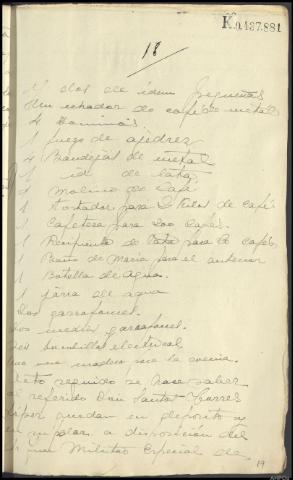 K.9.437.881
18
Y dos de idem pequeñas
Un echador de café de metal
4 Dominós
1 juego de ajedrez
4 Bandejas de metal
1 id de lata
2 Molino de Café
1 tostador para 2 Kilos de café
1 Cafetera para 200 Cafés.
1 Recipiente de lata para 60 cafés
1 Baño de Maria para el anterior
1 Botella de Agua.
1 jarra de agua
Dos garrafones.
Dos medios garrafones.
bombillas eléctricas
Una mesa madera para la cocina.
seguido se hace saber
al referido Don Torres
quedan en depósito y
a disposición del
Militar Especial de
19